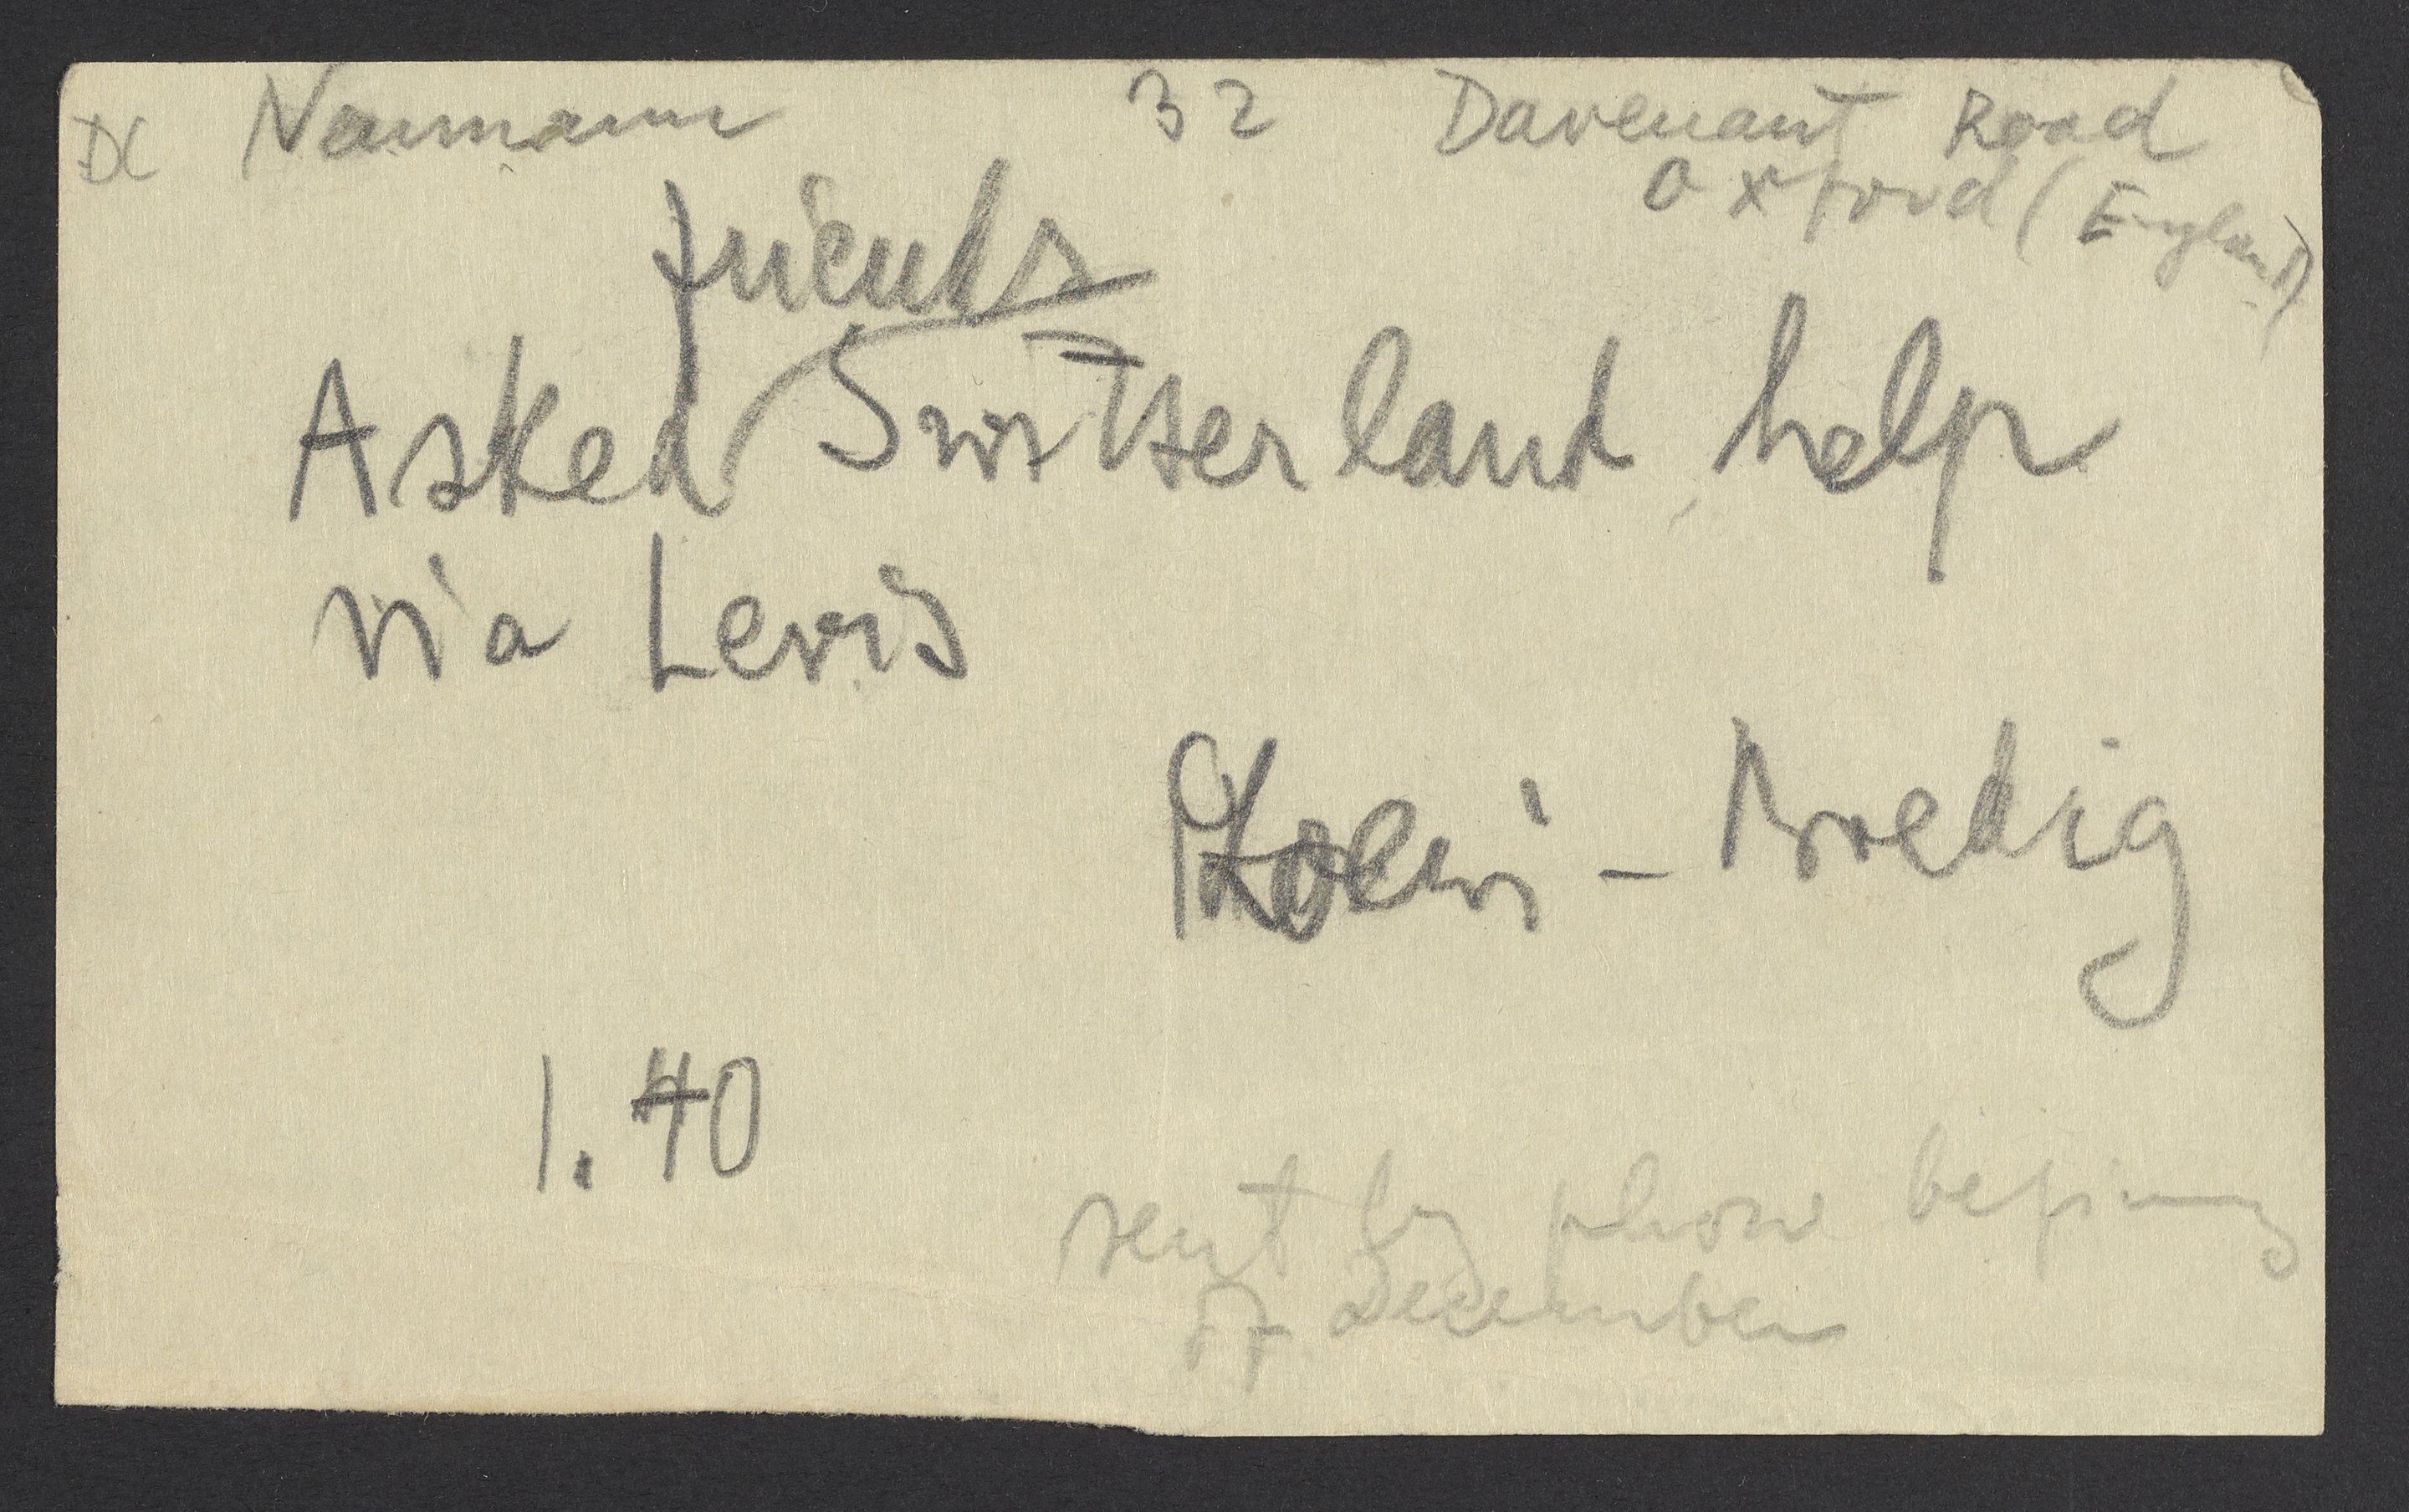 Naumann 32 Davenant Road
Oxford (England)
friends
Asked Switzerland help
via Lewis
- Bredig
1.40
sent by phone beginning
of December